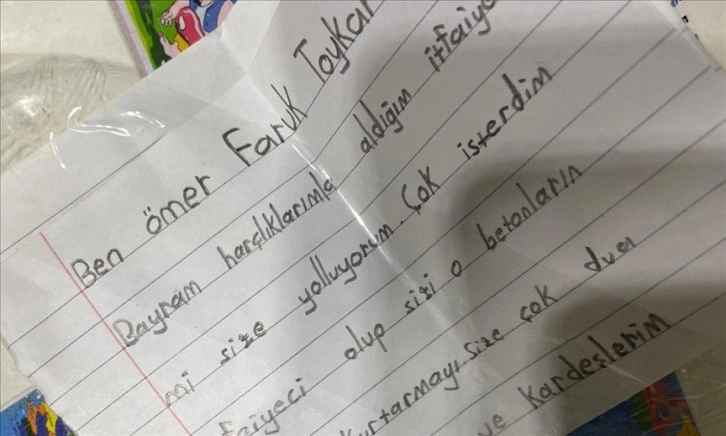 Ben ömer Faruk Toykar
Bayram harçlıklarımla aldığım itfaiye
mi size yolluyorum. Çok isterdim
faiyeci olup sizi o betonların
urtarmayı. size çok dua
ve kardeşlerim